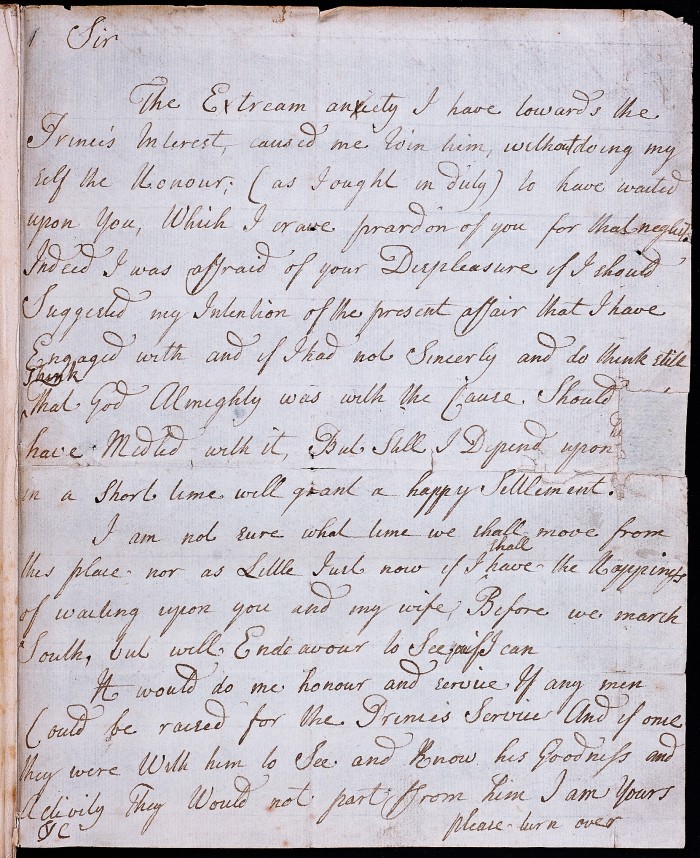 Sir
The Extream anxiety I have towards the
Princis Interest, caused me Join him, without doing my
self the Honour; (as I ought in duty) to have waited
upon You, Which I crave prardon of you for that neglict
Indeed I was affraid of your Displeasure if I should
Suggested my Intention of the present affair that I have
Engaged with and if I had not Sincerly and do think still
think
that God Almighty was with the Cause Should
have Medled with it, But Still I Depend upon
in a Short time will grant a happy Settlement.
I am not sure what time we shall move from
this place nor as Little Just now if I shall have the Happiniss
of waiting upon you and my wife, Before we march
South, but will Endeavour to See if I can
It would do me honour and service If any men
Could be raised for the Princis Service And if once
they were With him to See and Know his Goodness and
Activity They Would not part from him I am Yours
&C
please turn over